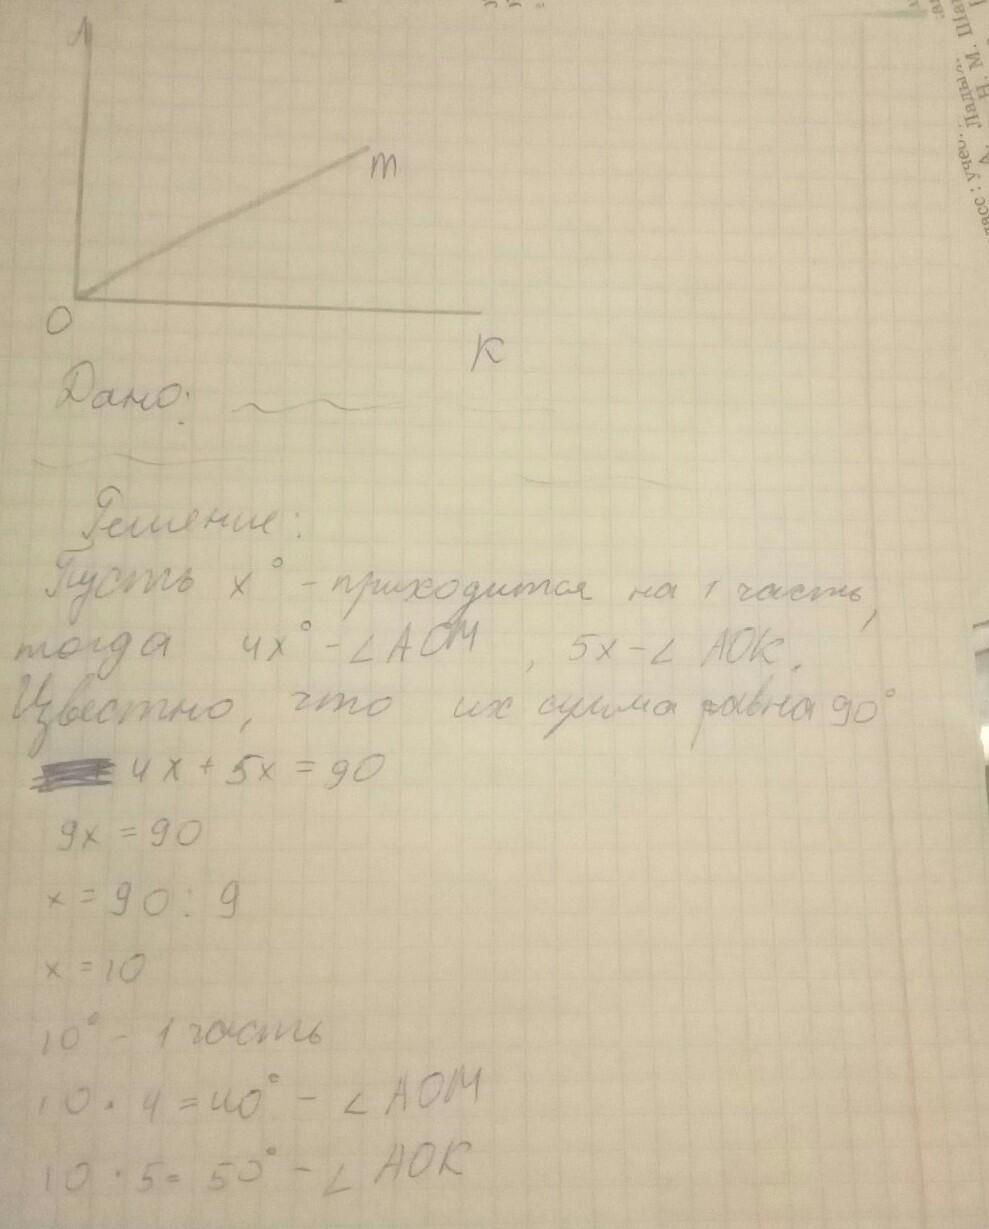 A
m
O
K
Дано:
Решение:
Пусть x° - приходится на 1 часть,
тогда 4x° - ∠AOM, 5x - ∠AOK.
Известно, что их сумма равна 90°
4x + 5x = 90
9x = 90
x = 90 : 9
x = 10
10° - 1 часть
10 · 4 = 40° - ∠AOM
10 · 5 = 50° - ∠AOK
Н. М. Ша
А.